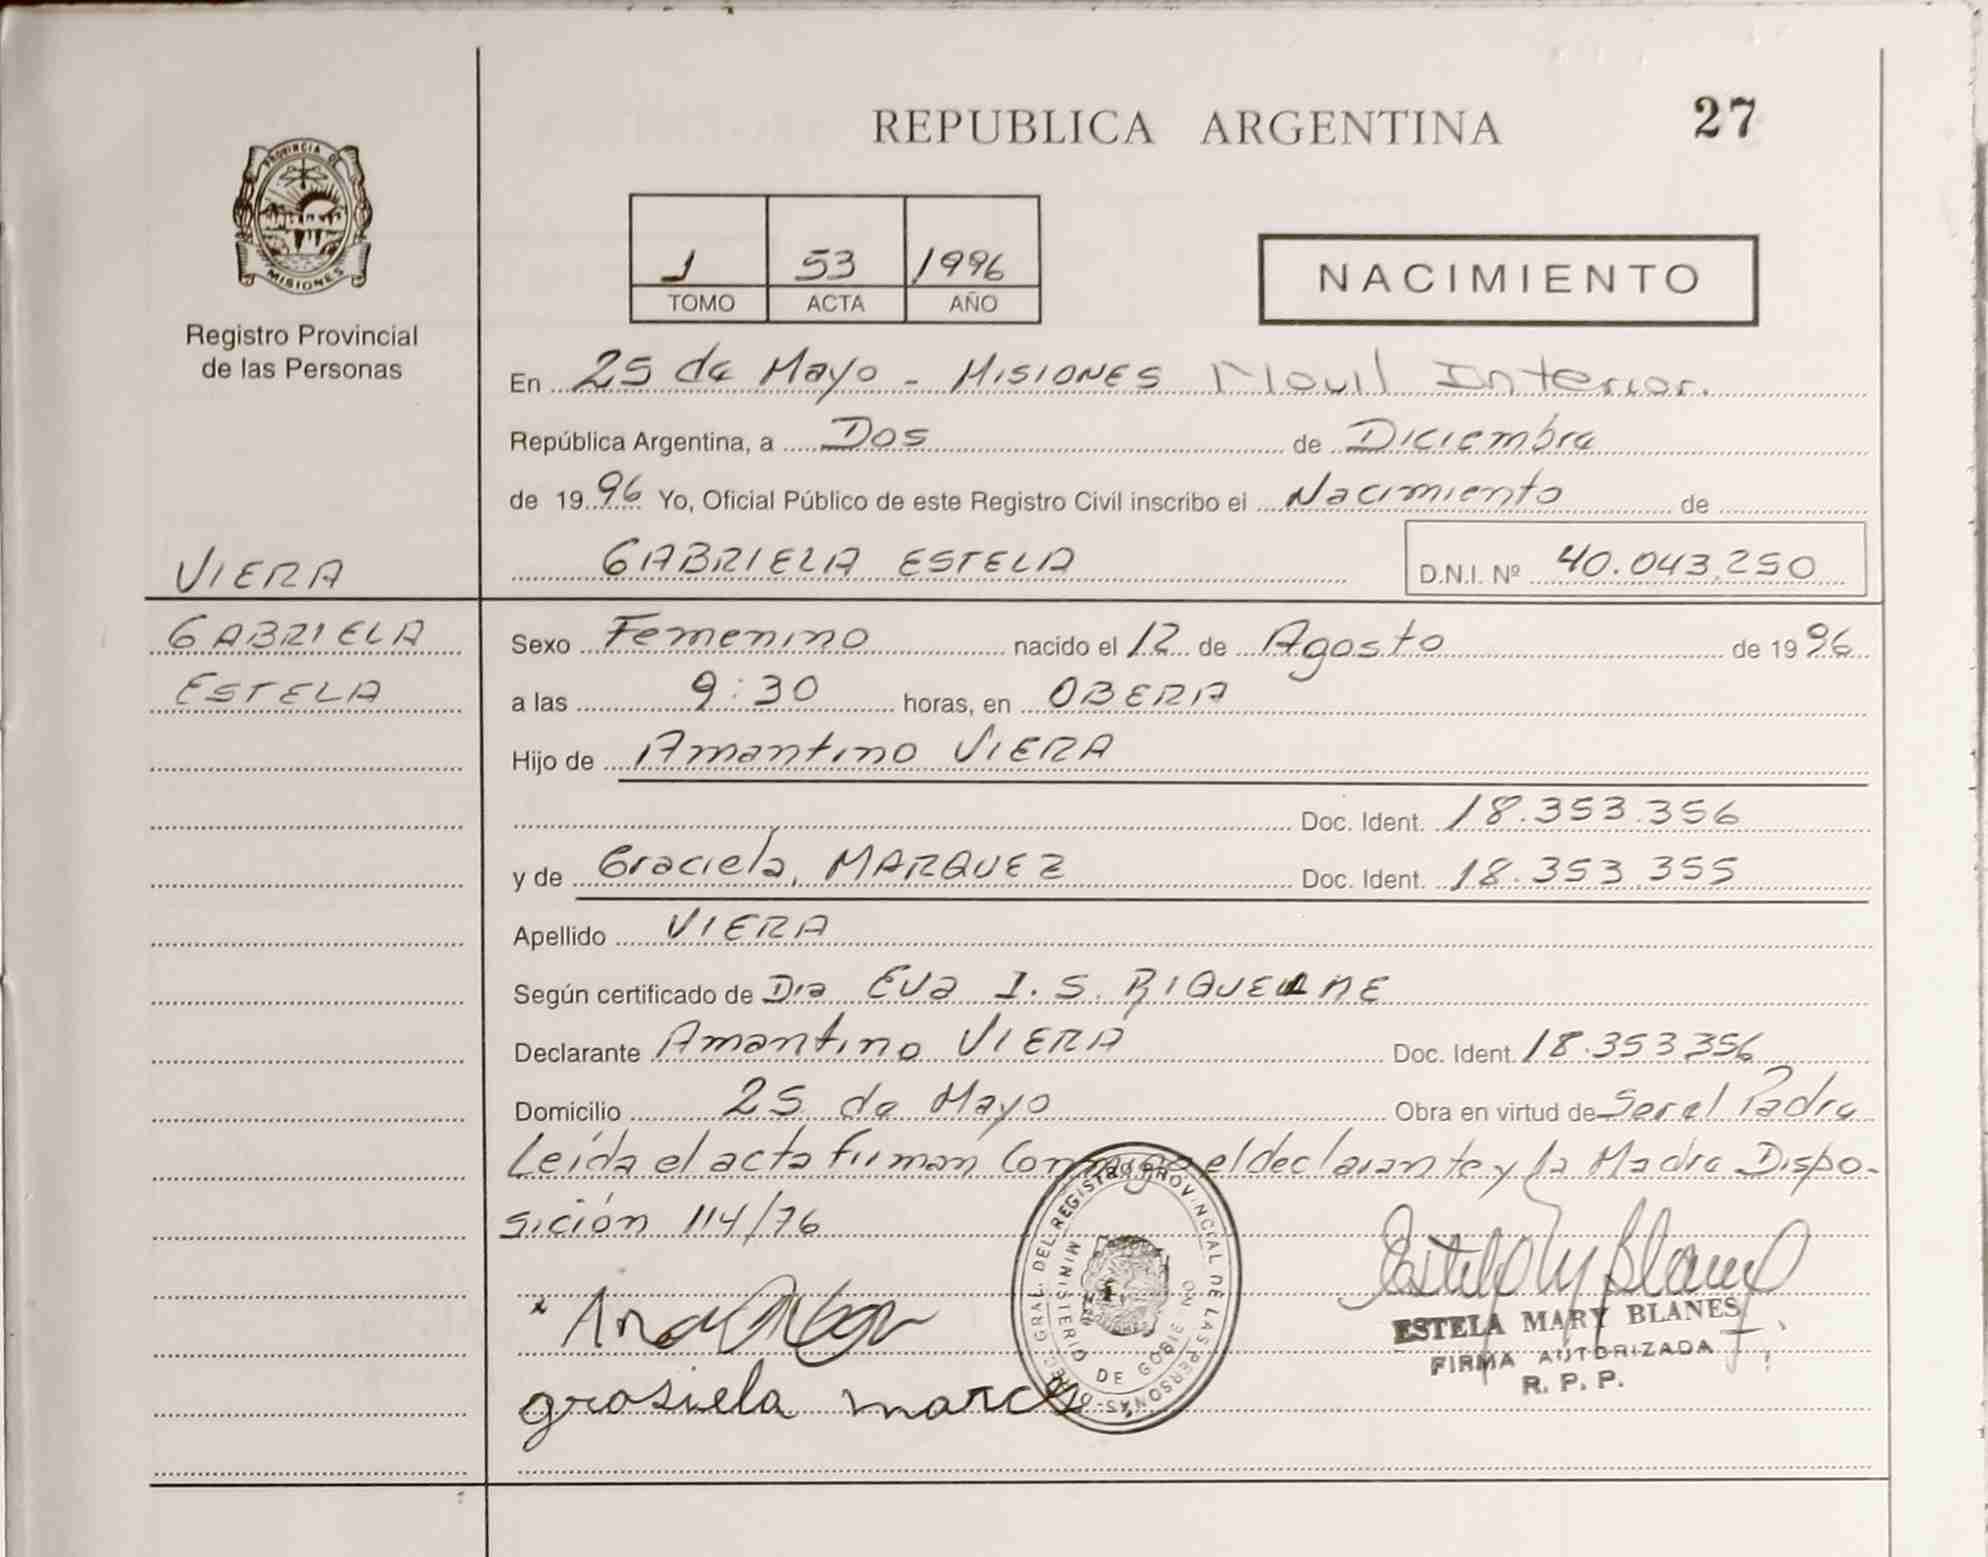 REPUBLICA ARGENTINA
27
PROVINCIA DE
MISIONES
Registro Provincial
de las Personas
1 53 1996
TOMO ACTA AÑO
NACIMIENTO
En 25 de Mayo - MISIONES Movil Interior.
República Argentina, a Dos de Diciembre
de 1996 Yo, Oficial Público de este Registro Civil inscribo el Nacimiento de
VIERA
GABRIELA ESTELA D.N.I. Nº 40.043.250
GABRIELA
ESTELA
Sexo Femenino nacido el 12 de Agosto de 1996
a las 9:30 horas, en OBERA
Hijo de Amantino VIERA
Doc. Ident. 18.353.356
y de Graciela, MARQUEZ Doc. Ident. 18.353.355
Apellido VIERA
Según certificado de Dra Eva I. S. RIQUELME
Declarante Amantino VIERA Doc. Ident. 18.353.356
Domicilio 25 de Mayo Obra en virtud de Ser el Padre
Leída el acta firman Conmigo el declarante y la Madre Dispo-
sición 114/76
DIREC. GRAL. DEL REGISTRO PROVINCIAL DE LAS PERSONAS
MINISTERIO DE GOBIERNO
ESTELA MARY BLANES
FIRMA AUTORIZADA
R. P. P.
grasiela marc